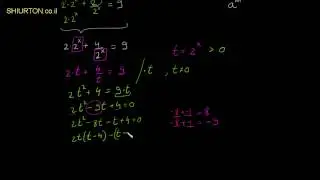 SHIURTON.co.il
2·2ˣ + 8/2ˣ = 9
aᵐ
2·2ˣ + 4/2ˣ = 9
t = 2ˣ > 0
2·t + 4/t = 9 /·t , t≠0
2t² + 4 = 9·t
2t² - 9t + 4 = 0
-8·-1 = 8
-8+-1 = -9
2t² - 8t - t + 4 = 0
2t(t-4) - (t-